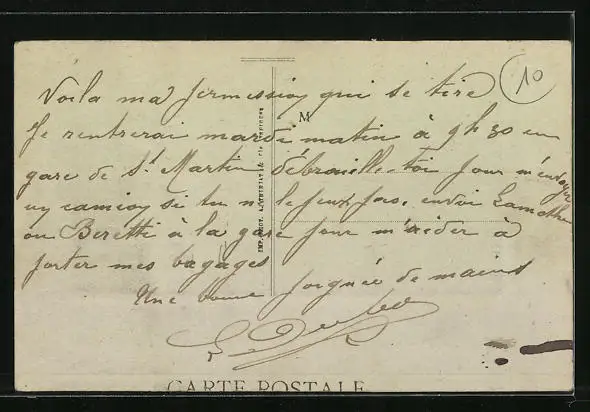 10
Voila ma permission qui se tire
M
Je rentrerai mardi matin à 9h30 en
gare de St Martin débrouille-toi pour m'envoyer
un camion si tu ne le peux pas. envoi Lamothe
ou Beretti à la gare pour m'aider à
porter mes bagages
Une bonne poignée de mains
CARTE POSTALE